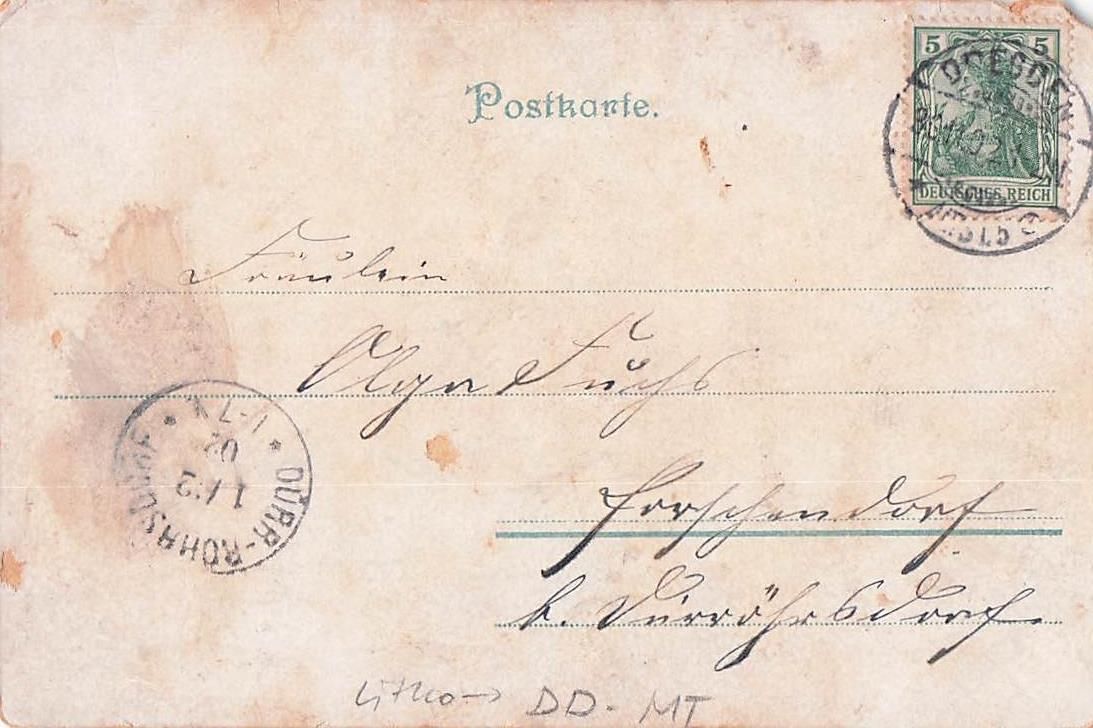 Postkarte.
5 5
DEUTSCHES REICH
DRESDEN
Fräulein
Olga Fuchs
Porschendorf
b. Dürröhrsdorf.
DÜRR-RÖHRSDORF
02
DD- MT